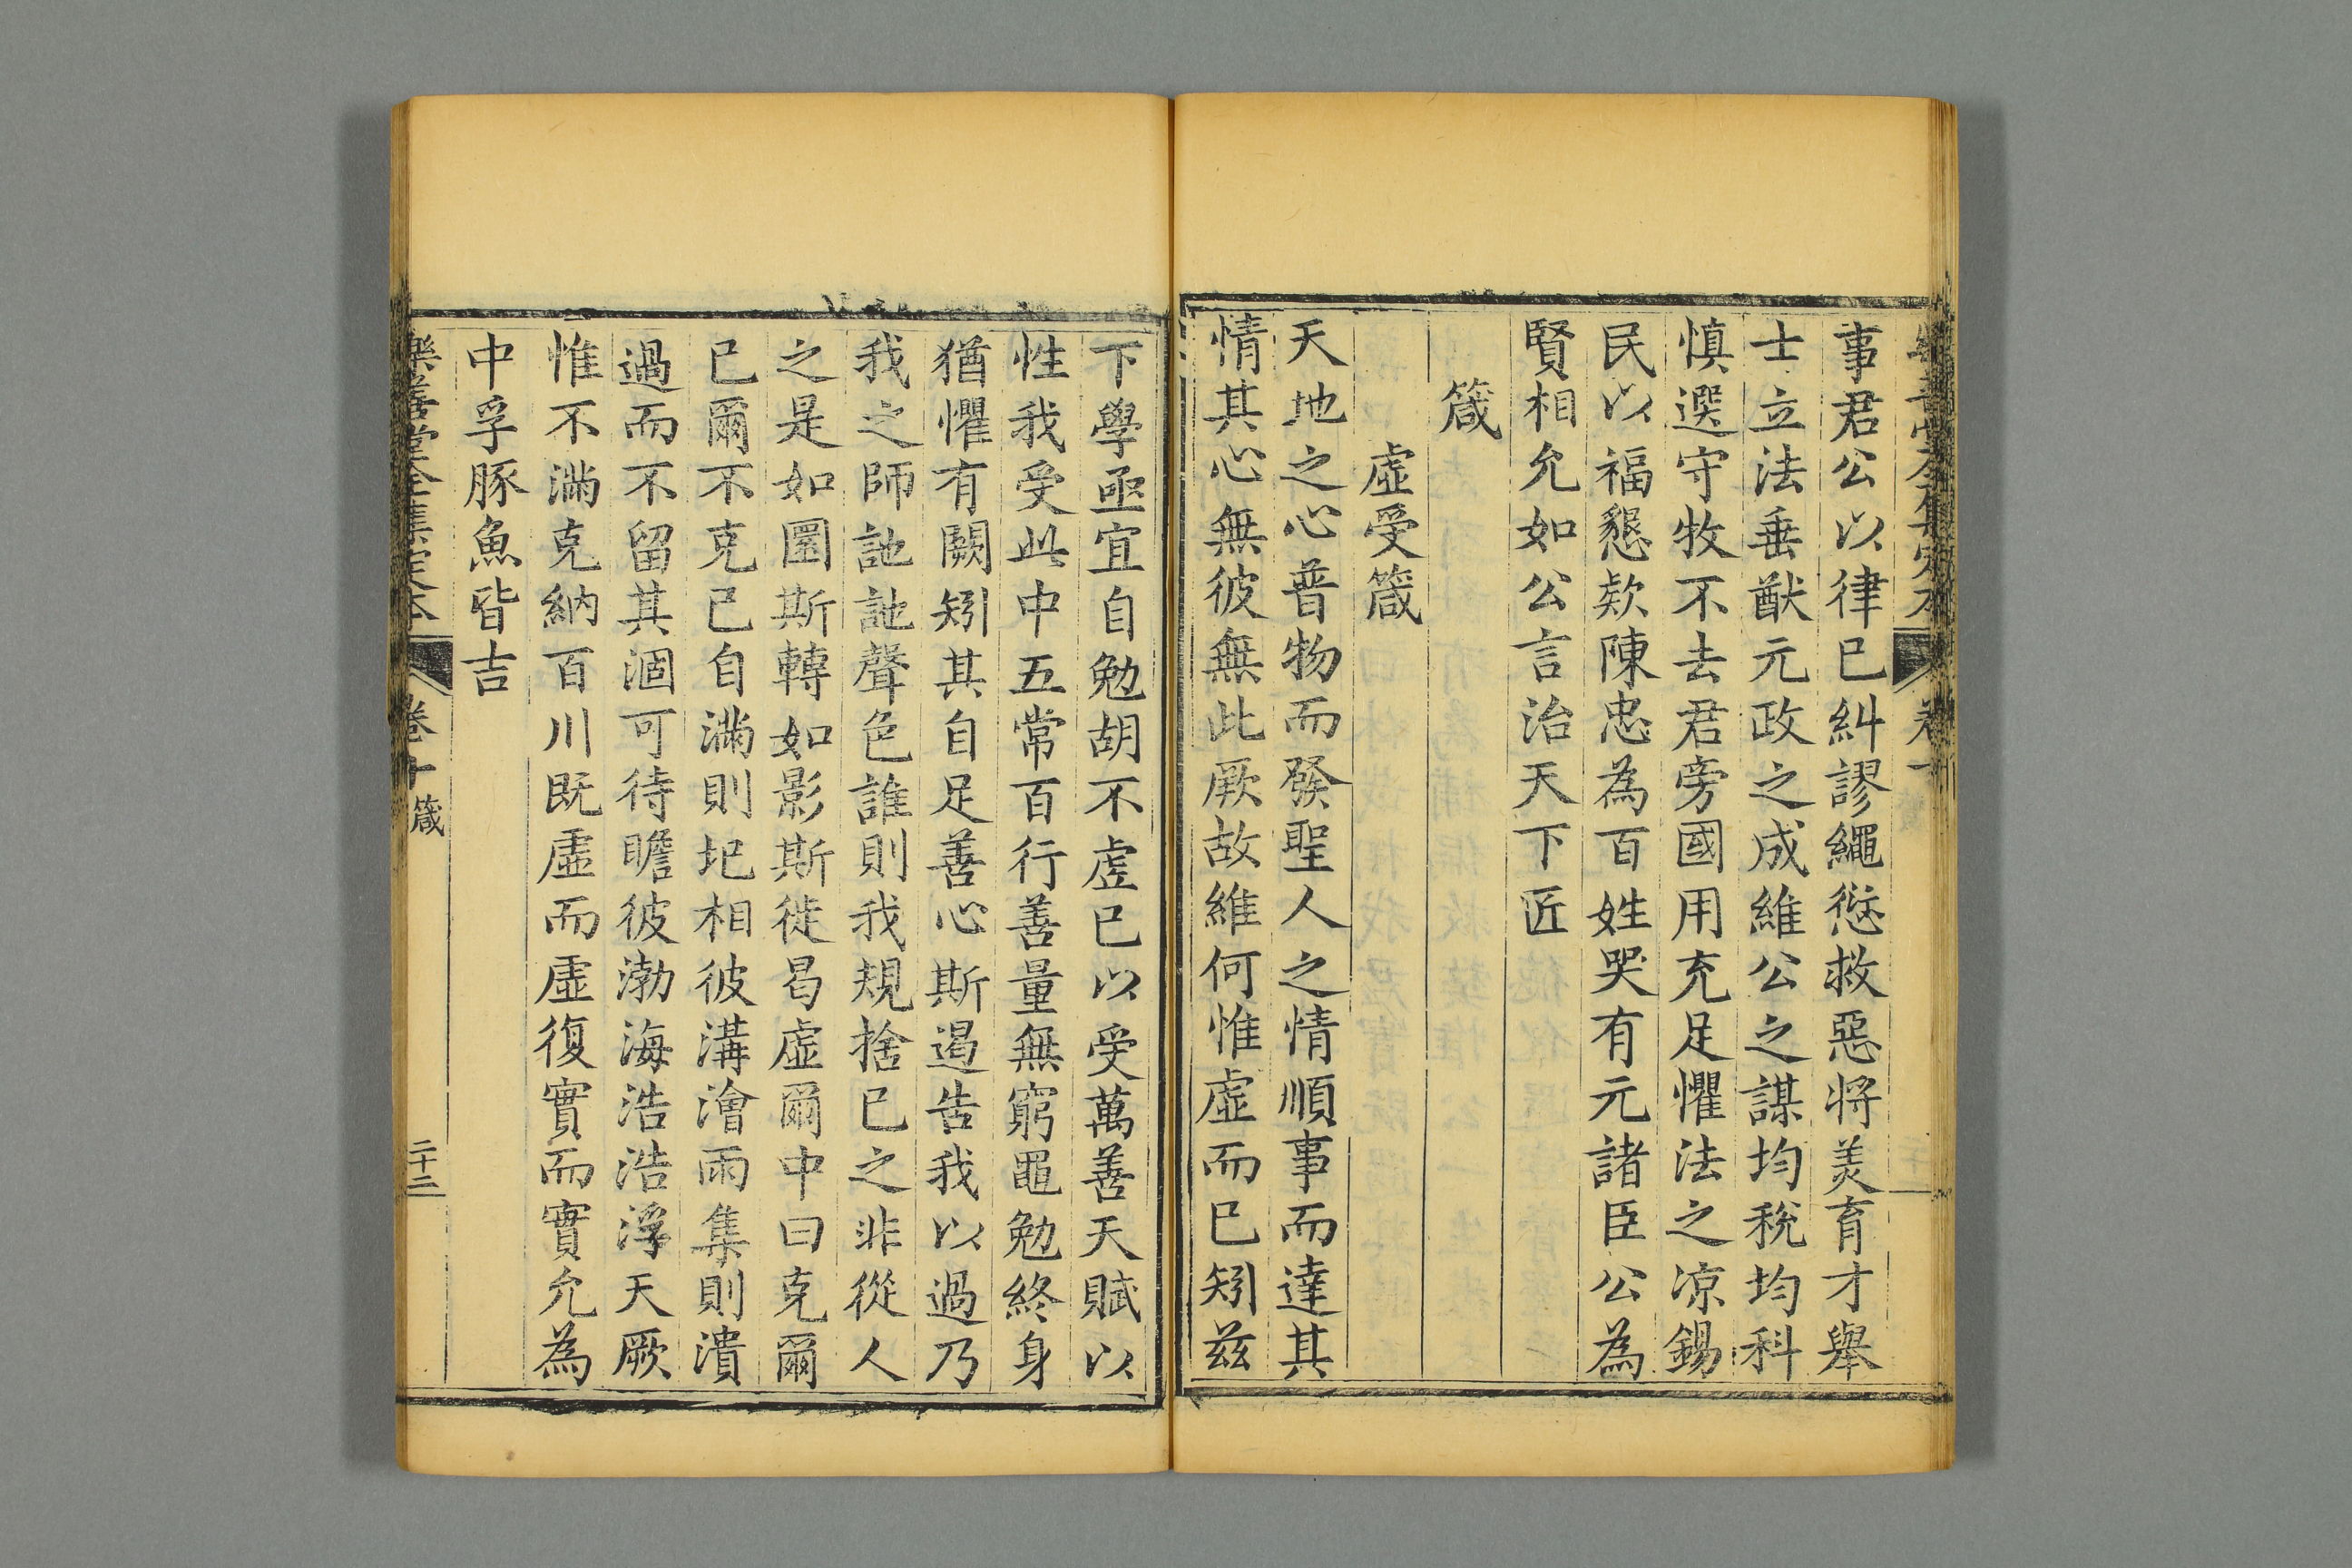 事君公以律已糾謬繩愆救惡将羙育才舉
士立法垂猷元政之成維公之謀均稅均科
慎選守牧不去君旁國用充足懼法之凉錫
民以福懇欵陳忠為百姓哭有元諸臣公為
賢相允如公言治天下匠
箴
虛受箴
天地之心普物而發聖人之情順事而達其
情其心無彼無此厥故維何惟虛而已矧兹
下學亟宜自勉胡不虛已以受萬善天賦以
性我受此中五常百行善量無窮黽勉終身
猶懼有闕矧其自足善心斯遏告我以過乃
我之師訑訑聲色誰則我規捨已之非從人
之是如圜斯轉如影斯徙曷虛爾中曰克爾
已爾不克已自滿則圯相彼溝澮雨集則潰
過而不留其涸可待瞻彼渤海浩浩浮天厥
惟不滿克納百川既虛而虛復實而實允為
中孚豚魚皆吉
樂善堂全集定本 卷十 箴 二十二